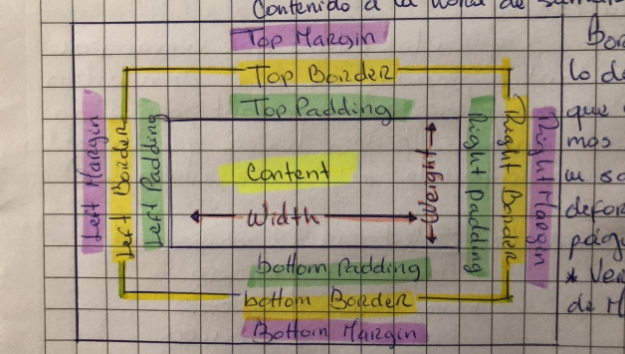 Contenido a la hora de
Top Margin
Top Border
Top Padding
Left Margin
Left Border
Left Padding
Content
Width
Weight
Right Padding
Right Border
Right Margin
bottom Padding
bottom Border
Bottom Margin
lo de
que
mos
página
* Ver
de M